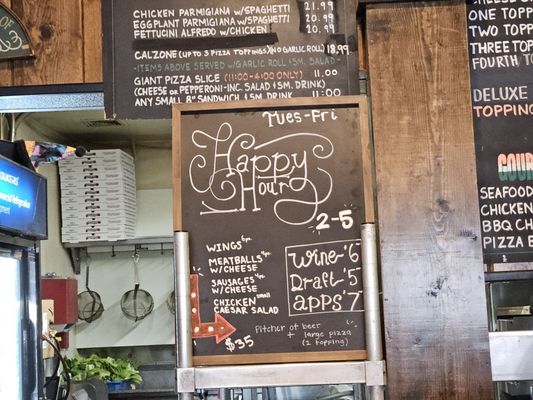 CHICKEN PARMIGIANA W/SPAGHETTI 21.99
EGGPLANT PARMIGIANA W/SPAGHETTI 20.99
FETTUCINI ALFREDO W/CHICKEN 20.99
CALZONE (UP TO 3 PIZZA TOPPINGS/NO GARLIC ROLL) 18.99
-ITEMS ABOVE SERVED W/GARLIC ROLL & SM. SALAD-
GIANT PIZZA SLICE (11:00-4:00 ONLY) 11.00
(CHEESE OR PEPPERONI-INC. SALAD & SM. DRINK)
ANY SMALL 8" SANDWICH & SM. DRINK 11.00
Tues-Fri
Happy
Hour
2-5
WINGS 6pc
MEATBALLS
W/CHEESE
SAUSAGES
W/CHEESE
CHICKEN small
CAESAR SALAD
Wine $6
Draft $5
apps $7
$35
Pitcher of beer
+ large pizza
(2 topping)
ONE TOPP
TWO TOPP
THREE TOP
FOURTH TO
DELUXE
TOPPING
GOUR
SEAFOOD
CHICKEN
BBQ CH
PIZZA B